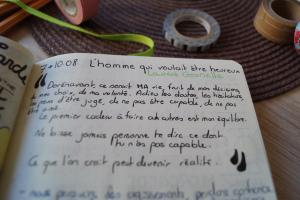 10.08 L'homme qui voulait être heureux
Laurent Gounelle
Dorénavant, ce serait MA vie, fruit de mes décisions,
mon choix, de ma volonté. Adieu les doutes, les hésitations,
peur d'être jugé, de ne pas être capable, de ne pas
Le premier cadeau à faire aux autres est mon équilibre.
Ne laisse jamais personne te dire ce dont
tu n'es pas capable.
Ce que l'on croit peut devenir réalité.
nous